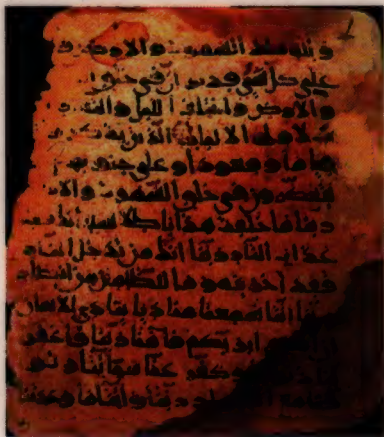 ولله ملك السموت والارض و
على كل شي قدير ان في خلق
والارض واختلف الليل والنهر
لاولي الالباب الذين يذكرو
قياما وقعودا وعلى جنوبهم
يتفكرون في خلق السموت والار
ربنا ما خلقت هذا باطلا سبحنك فقنا
عذاب النار ربنا انك من تدخل النار
فقد اخزيته وما للظلمين من انصار
ربنا اننا سمعنا مناديا ينادي للايمان
بربكم فامنا ربنا فاغفر
وكفر عنا سياتنا وتو
مع ربنا واتنا ما وعدتنا